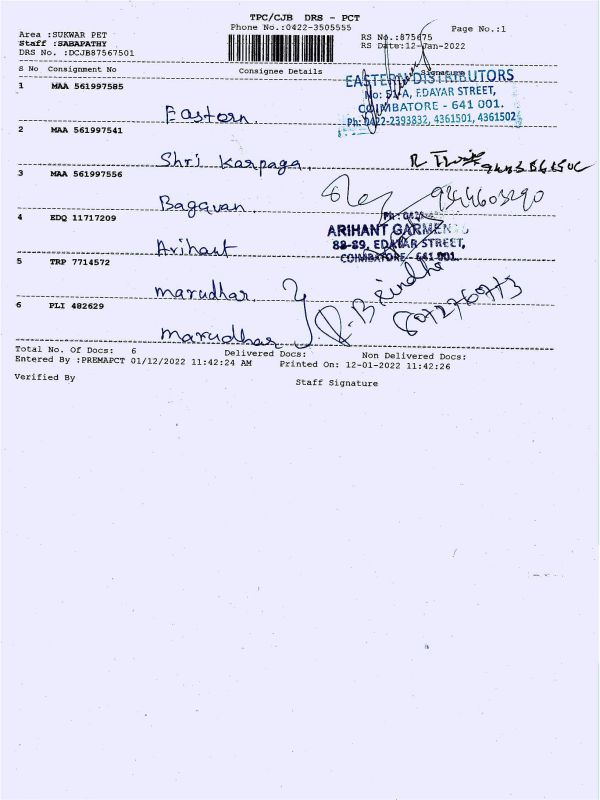 TPC/CJB DRS - PCT
Phone No.:0422-3505555
Page No.:1
Area :SUKWAR PET
RS No.:875675
Staff :SABAPATHY
RS Date:12-Jan-2022
DRS No. :DCJB87567501
S No Consignment No Consignee Details Signature
1 MAA 561997585
Eastern.
EASTERN DISTRIBUTORS
No: 51-A, EDAYAR STREET,
COIMBATORE - 641 001.
Ph: 0422-2393832, 4361501, 4361502
2 MAA 561997541
Shri Karpaga.
3 MAA 561997556
Bagavan.
9344603290
4 EDQ 11717209
Arihant
ARIHANT GARMENTS
88-89, EDAYAR STREET,
COIMBATORE - 641 001.
5 TRP 7714572
marudhar.
6 PLI 482629
marudhar
Total No. Of Docs: 6 Delivered Docs: Non Delivered Docs:
Entered By :PREMAPCT 01/12/2022 11:42:24 AM Printed On: 12-01-2022 11:42:26
Verified By
Staff Signature